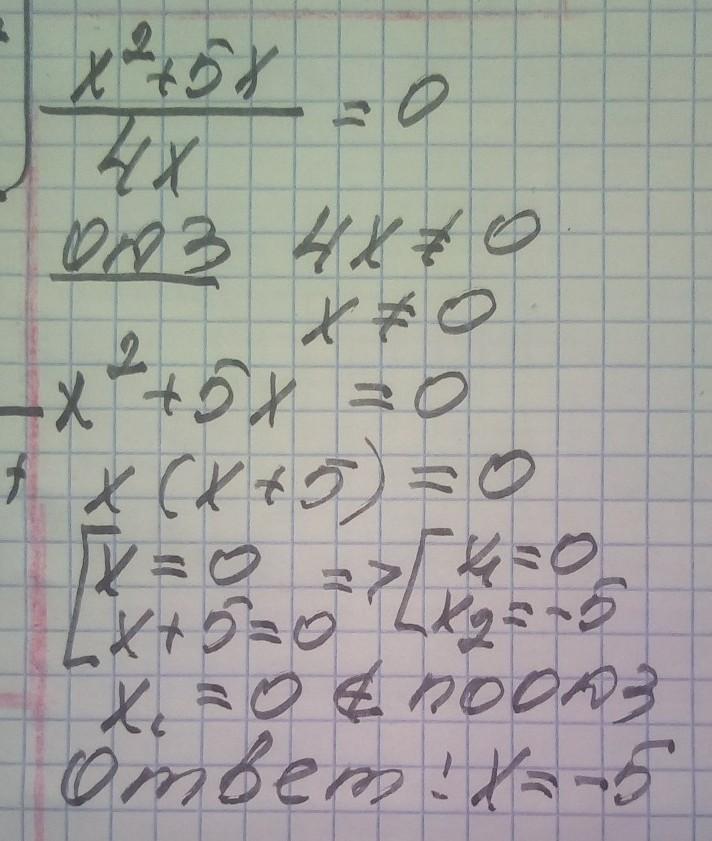 x²+5x
4x
= 0
ОДЗ 4x ≠ 0
x ≠ 0
x²+5x = 0
x(x+5) = 0
[x = 0 => [x₁ = 0
x+5=0 x₂=-5
x₁ = 0 ∉ по ОДЗ
Ответ: x = -5